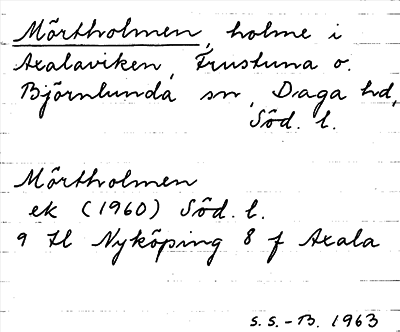 Mörtholmen, holme i
Axalaviken, Frustuna o.
Björnlunda sn, Daga hd,
Söd. l.
Mörtholmen
ek (1960) Söd. l.
9 H Nyköping 8 f Axala
S.S.-B. 1963